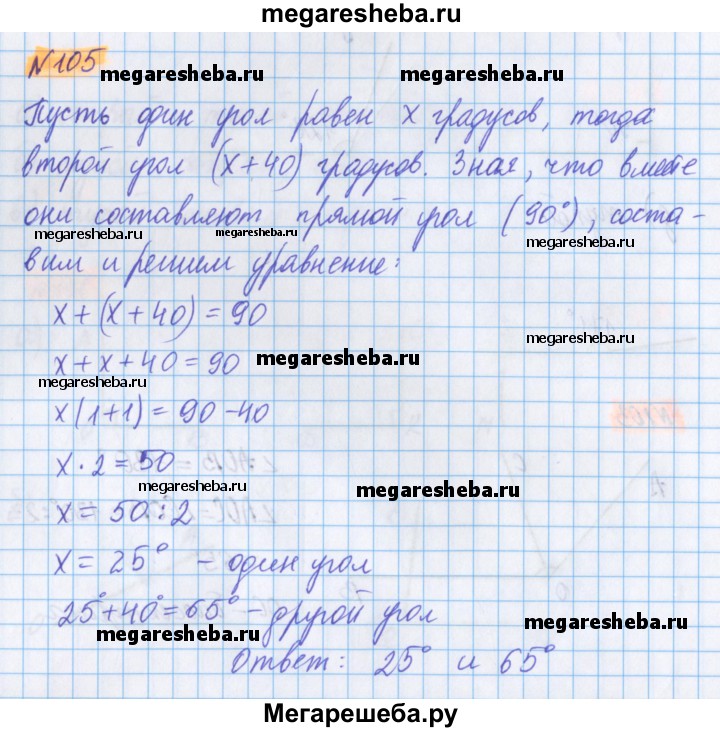 megaresheba.ru
№105
megaresheba.ru megaresheba.ru
Пусть один угол равен x градусов, тогда
второй угол (x+40) градусов. Зная, что вместе
они составляют прямой угол (90°), соста-
megaresheba.ru megaresheba.ru megaresheba.ru
вим и решим уравнение:
x+(x+40)=90
megaresheba.ru
x+x+40=90 megaresheba.ru
megaresheba.ru
x(1+1)=90-40
x·2=50
megaresheba.ru megaresheba.ru
x=50:2
x=25° - один угол
25°+40°=65° - другой угол
megaresheba.ru megaresheba.ru
Ответ: 25° и 65°
Мегарешеба.ру